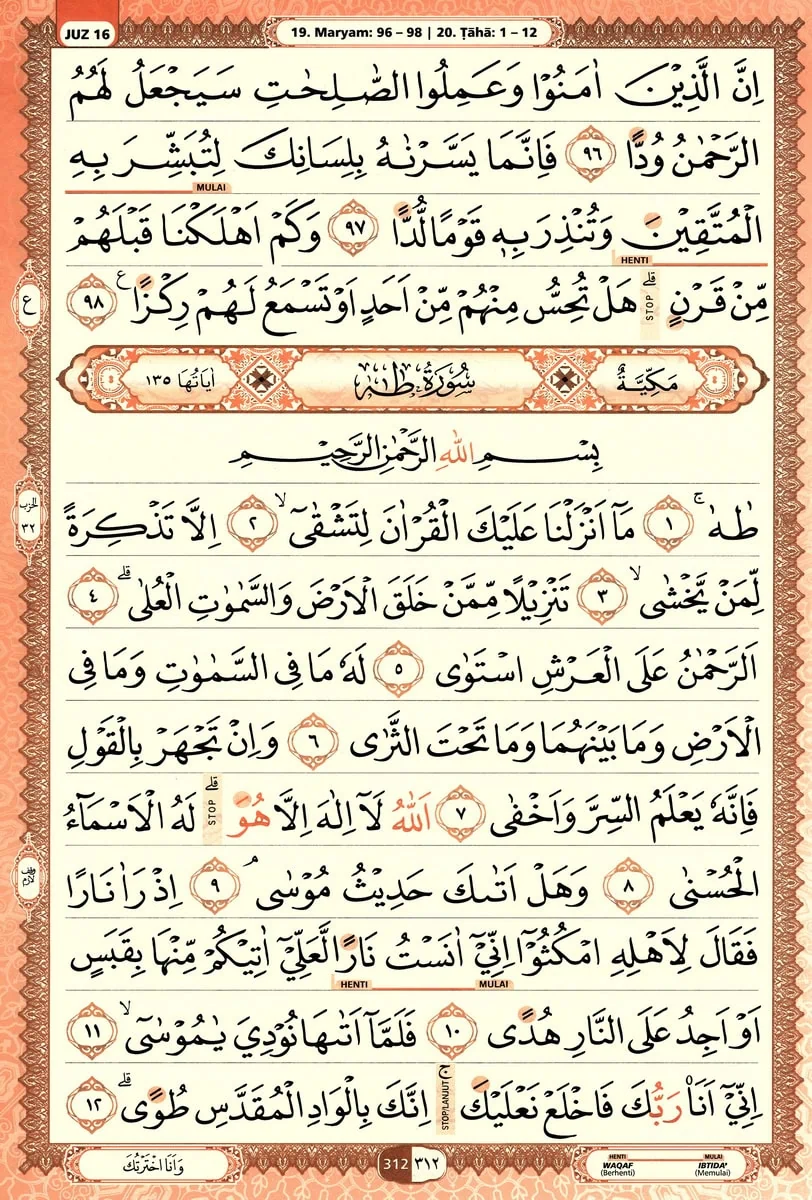 JUZ 16
19. Maryam: 96 – 98 | 20. Ṭāhā: 1 – 12
اِنَّ الَّذِيْنَ اٰمَنُوْا وَعَمِلُوا الصّٰلِحٰتِ سَيَجْعَلُ لَهُمُ
الرَّحْمٰنُ وُدًّا ٩٦ فَاِنَّمَا يَسَّرْنٰهُ بِلِسَانِكَ لِتُبَشِّرَ بِهِ
MULAI
الْمُتَّقِيْنَ وَتُنْذِرَ بِهٖ قَوْمًا لُّدًّا ٩٧ وَكَمْ اَهْلَكْنَا قَبْلَهُمْ
HENTI
مِّنْ قَرْنٍ ۗ هَلْ تُحِسُّ مِنْهُمْ مِّنْ اَحَدٍ اَوْ تَسْمَعُ لَهُمْ رِكْزًا ࣖ ٩٨
قلے STOP
ع
مَكِّيَّةٌ سُوْرَةُ طٰهٰ اٰيَاتُهَا ١٣٥
بِسْمِ اللّٰهِ الرَّحْمٰنِ الرَّحِيْمِ
طٰهٰ ۚ ١ مَآ اَنْزَلْنَا عَلَيْكَ الْقُرْاٰنَ لِتَشْقٰٓى ۙ ٢ اِلَّا تَذْكِرَةً
الحزب
٣٢
لِّمَنْ يَّخْشٰى ۙ ٣ تَنْزِيْلًا مِّمَّنْ خَلَقَ الْاَرْضَ وَالسَّمٰوٰتِ الْعُلٰى ۗ ٤
اَلرَّحْمٰنُ عَلَى الْعَرْشِ اسْتَوٰى ٥ لَهٗ مَا فِى السَّمٰوٰتِ وَمَا فِى
الْاَرْضِ وَمَا بَيْنَهُمَا وَمَا تَحْتَ الثَّرٰى ٦ وَاِنْ تَجْهَرْ بِالْقَوْلِ
فَاِنَّهٗ يَعْلَمُ السِّرَّ وَاَخْفٰى ٧ اَللّٰهُ لَآ اِلٰهَ اِلَّا هُوَ ۗ لَهُ الْاَسْمَاۤءُ
قلے STOP
الْحُسْنٰى ٨ وَهَلْ اَتٰىكَ حَدِيْثُ مُوْسٰى ۘ ٩ اِذْ رَاٰ نَارًا
وقف لازم
فَقَالَ لِاَهْلِهِ امْكُثُوْٓا اِنِّيْٓ اٰنَسْتُ نَارًا لَّعَلِّيْٓ اٰتِيْكُمْ مِّنْهَا بِقَبَسٍ
HENTI MULAI
اَوْ اَجِدُ عَلَى النَّارِ هُدًى ١٠ فَلَمَّآ اَتٰىهَا نُوْدِيَ يٰمُوْسٰٓى ۙ ١١
اِنِّيْٓ اَنَا۠ رَبُّكَ فَاخْلَعْ نَعْلَيْكَ ۚ اِنَّكَ بِالْوَادِ الْمُقَدَّسِ طُوًى ۗ ١٢
ج STOP/LANJUT
وَاَنَا اخْتَرْتُكَ
312 ٣١٢
HENTI MULAI
WAQAF IBTIDA'
(Berhenti) (Memulai)